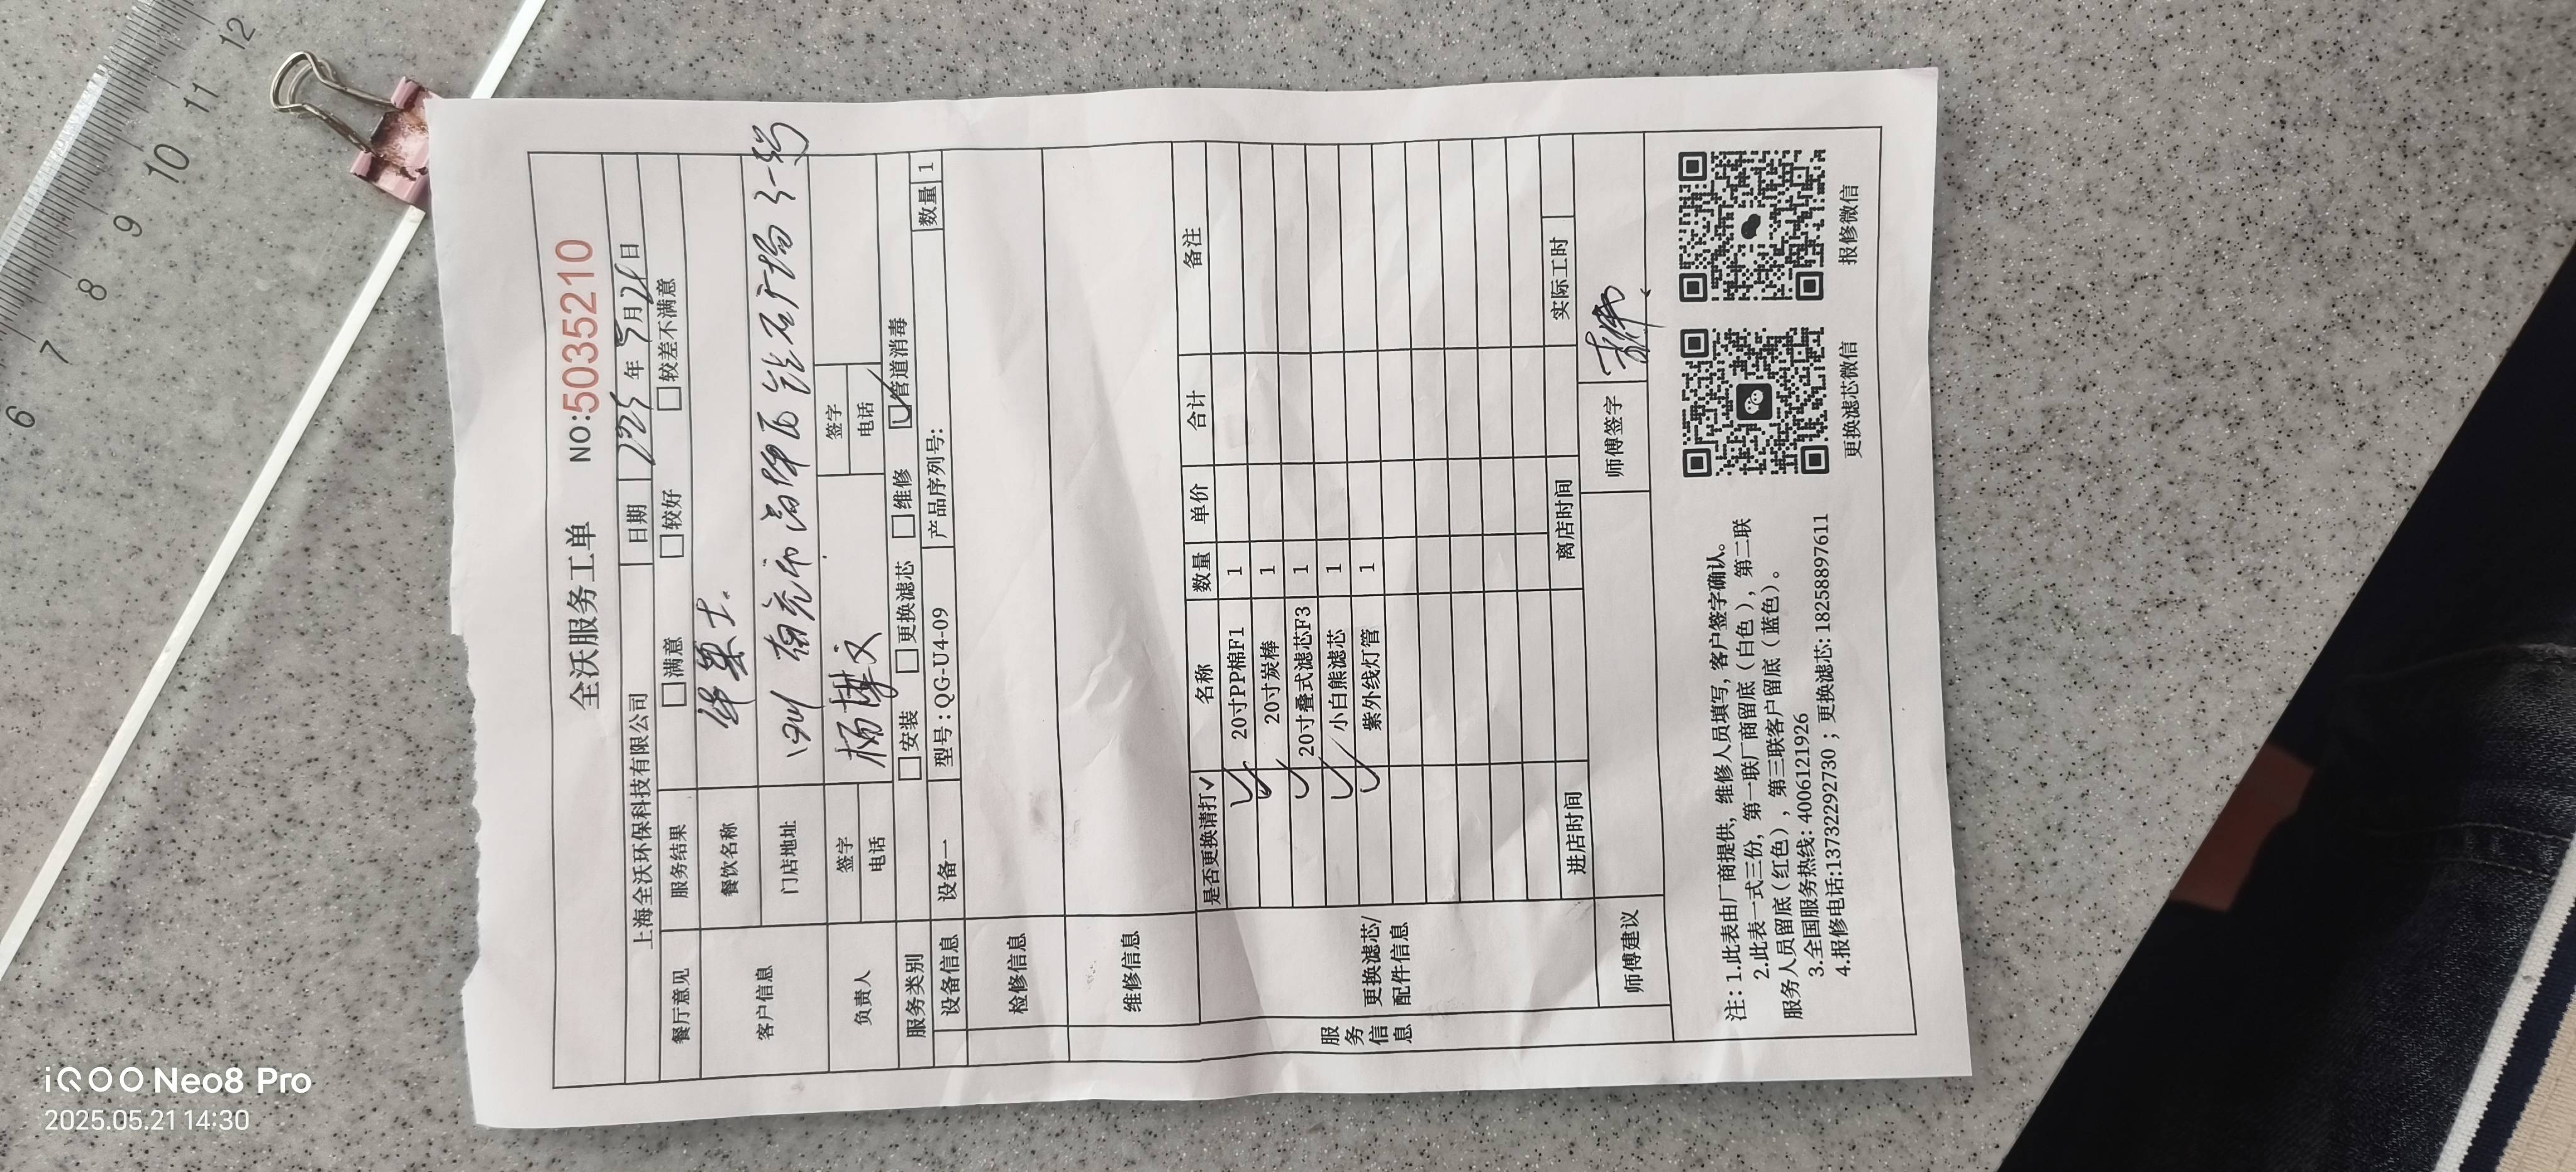 全沃服务工单 NO:5035210
上海全沃环保科技有限公司 日期 2025年5月21日
餐厅意见 服务结果 □满意 □较好 □较差不满意
客户信息 餐饮名称 华莱士.
门店地址 四川南充市
负责人 签字 杨 文 签字
电话 电话
服务类别 □安装 □更换滤芯 □维修 ☑管道消毒
设备信息 设备一 型号:QG-U4-09 产品序列号: 数量 1
检修信息
维修信息
服务信息
更换滤芯/配件信息
是否更换请打✓ 名称 数量 单价 合计 备注
✓ 20寸PP棉F1 1
✓ 20寸炭棒 1
✓ 20寸叠式滤芯F3 1
✓ 小白熊滤芯 1
✓ 紫外线灯管 1
进店时间 离店时间 实际工时
师傅建议 师傅签字
注:1.此表由厂商提供,维修人员填写,客户签字确认。
2.此表一式三份,第一联厂商留底(白色),第二联
服务人员留底(红色),第三联客户留底(蓝色)。
3.全国服务热线:4006121926
4.报修电话:13732292730;更换滤芯:18258897611
更换滤芯微信 报修微信
6 7 8 9 10 11 12
iQOO Neo8 Pro
2025.05.21 14:30